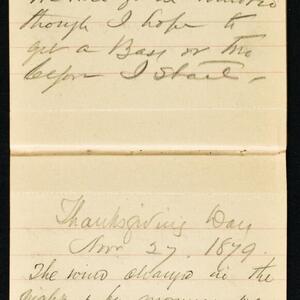 though I hope to
get a Bass or two
before I start -
Thanksgiving Day
Nov. 27. 1879.
The wind changed in the
night